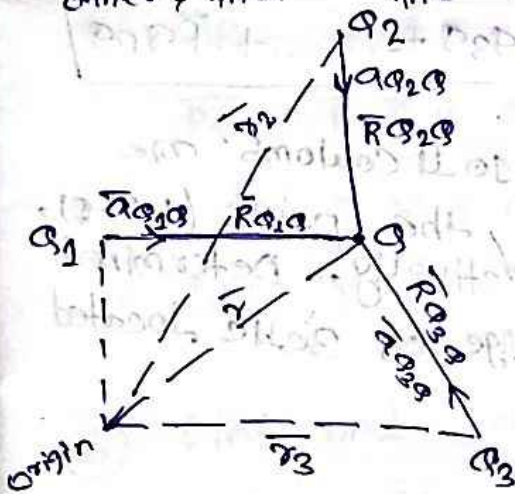 Q2
āQ2Q
r̄2
R̄Q2Q
āQ1Q
R̄Q1Q
Q1
Q
r̄
R̄Q3Q
āQ3Q
origin
r̄3
Q3